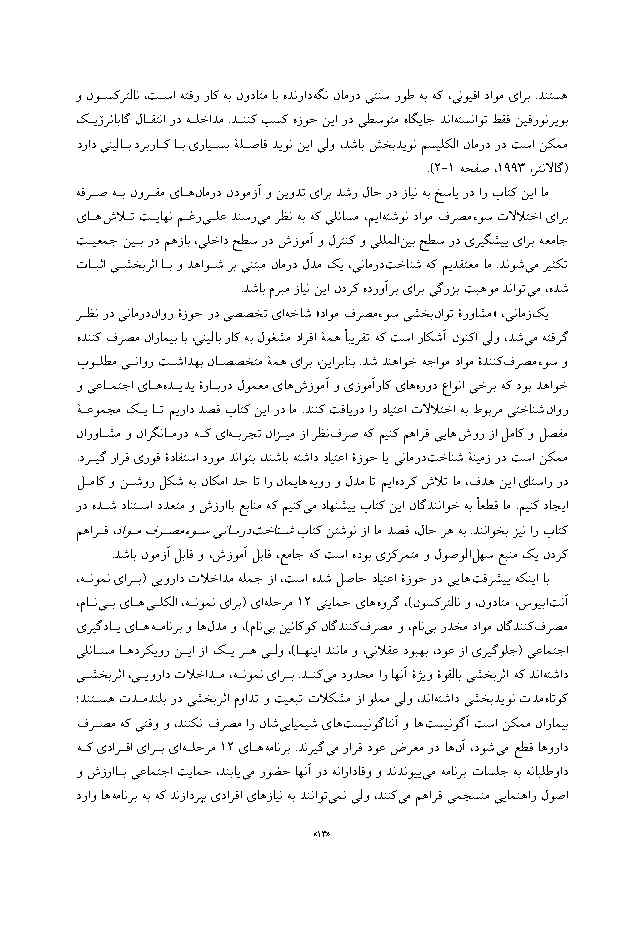 هستند. برای مواد افیونی، که به طور سنتی درمان نگه‌دارنده با متادون به کار رفته است، نالترکسون و
بوپرنورفین فقط توانسته‌اند جایگاه متوسطی در این حوزه کسب کنند. مداخله انتقال آنتاگونیک
ممکن است در درمان الکلیسم نویدبخش باشد، ولی این نوید اصالةً بسیاری با کاربرد بالینی دارد
(گالانتر، ۱۹۹۳، صفحه ۱-۲).
اما این کتاب را در پاسخ به نیاز در حال رشد برای تدوین و آزمودن درمان‌های مقرون به صرفه
برای اختلالات سوءمصرف مواد نوشته‌ایم، مسائلی که به نظر می‌رسند علی‌رغم نهایت تلاش‌های
جامعه برای پیشگیری در سطح بین‌المللی و کنترل و آموزش در سطح داخلی، بازهم در بین جمعیت
تکثیر می‌شوند. ما معتقدیم که شناخت‌درمانی، یک مدل درمان مبتنی بر شواهد و با اثربخشی اثبات
شده، می‌تواند موهبت بزرگی برای برآورده کردن این نیاز مبرم باشد.
یک‌زمانی، «مشاورهٔ توان‌بخشی سوءمصرف مواد» شاخه‌ای تخصصی در حوزه روان‌درمانی در نظر
گرفته می‌شد، ولی اکنون آشکار است که تقریباً همهٔ افراد مشغول به کار بالینی، با بیماران مصرف کننده
و سوءمصرف‌کنندهٔ مواد مواجه خواهند شد. بنابراین، برای همهٔ متخصصان بهداشت روانی مطلوب
خواهد بود که برخی انواع دوره‌های کارآموزی و آموزش‌های معمول دربارهٔ پدیده‌های اجتماعی و
روان‌شناختی مربوط به اختلالات اعتیاد را دریافت کنند. ما در این کتاب قصد داریم تا یک مجموعهٔ
مفصل و کامل از روش‌هایی فراهم کنیم که صرف‌نظر از میزان تجربه‌ای که درمانگران و مشاوران
ممکن است در زمینهٔ شناخت‌درمانی یا حوزهٔ اعتیاد داشته باشند، بتواند مورد استفادهٔ فوری قرار گیرد.
در راستای این هدف، ما تلاش کرده‌ایم تا مدل و رویه‌هایمان را تا حد امکان به شکل روشن و کامل
ایجاد کنیم. ما قطعاً به خوانندگان این کتاب پیشنهاد می‌کنیم که منابع باارزش و متعدد دانسته شده در
کتاب را نیز بخوانند. به هر حال، قصد ما از نوشتن کتاب شناخت‌درمانی سوءمصرف مواد، فراهم
کردن یک منبع سهل‌الوصول و متمرکزی بوده است که جامع، قابل آموزش، و قابل آزمون باشد.
با اینکه پیشرفت‌هایی در حوزهٔ اعتیاد حاصل شده است، از جمله مداخلات دارویی (برای نمونه،
آنتابیوس، متادون، و نالترکسون)، گروه‌های حمایتی ۱۲ مرحله‌ای (برای نمونه، الکلی‌های بی‌نام،
مصرف‌کنندگان مواد مخدر بی‌نام، و مصرف‌کنندگان کوکائین بی‌نام)، و مدل‌ها و برنامه‌های یادگیری
اجتماعی (جلوگیری از عود، بهبود عقلانی، و مانند اینها)، ولی هر یک از این رویکردها مسائلی
داشته‌اند که اثربخشی بالقوهٔ ویژهٔ آنها را محدود می‌کند. برای نمونه، مداخلات دارویی، اثربخشی
کوتاه‌مدت نویدبخشی داشته‌اند، ولی مملو از مشکلات تبعیت و تداوم اثربخشی در بلندمدت هستند؛
بیماران ممکن است آگونیست‌ها و آنتاگونیست‌های شیمیایی‌شان را مصرف نکنند، و وقتی که مصرف
داروها قطع می‌شود، آن‌ها در معرض عود قرار می‌گیرند. برنامه‌های ۱۲ مرحله‌ای برای افرادی که
داوطلبانه به جلسات برنامه می‌پیوندند و وفادارانه در آنها حضور می‌یابند، حمایت اجتماعی باارزش و
اصول راهنمایی منسجمی فراهم می‌کنند، ولی نمی‌توانند به نیازهای افرادی بپردازند که به برنامه‌ها وارد
«۱۳»